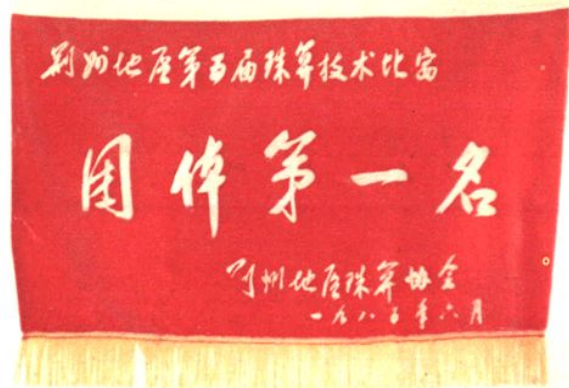 荆州地区第五届珠算技术比赛
团体第一名
荆州地区珠算协会
一九八五年六月